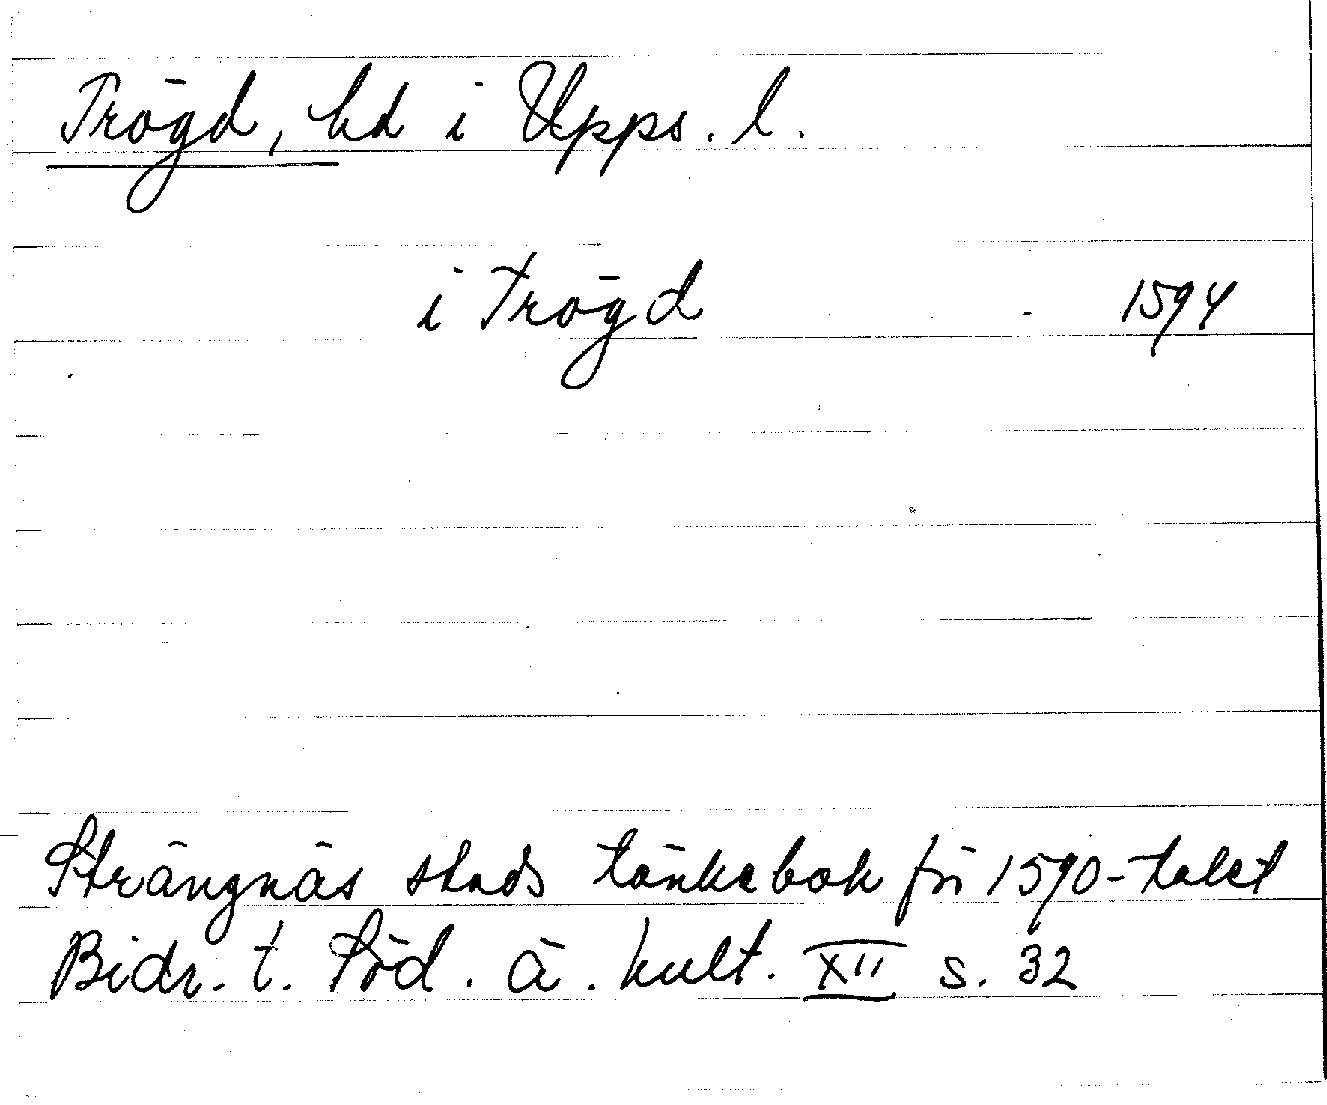 Trögd, hd i Upps. l.
i Trögd 1594
Strängnäs stads tänkebok för 1590-talet
Bidr. t. Söd. ä. kult. XII s. 32